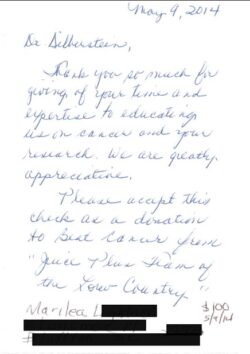 May 9, 2014
Dr Silberstein,
Thank you so much for
giving of your time and
expertise to educating
us on cancer and your
research. We are greatly
appreciative.
Please accept this
check as a donation
to beat cancer from
"Juice Plus Team of
the Low Country"
Marilea L
$100
5/9/14